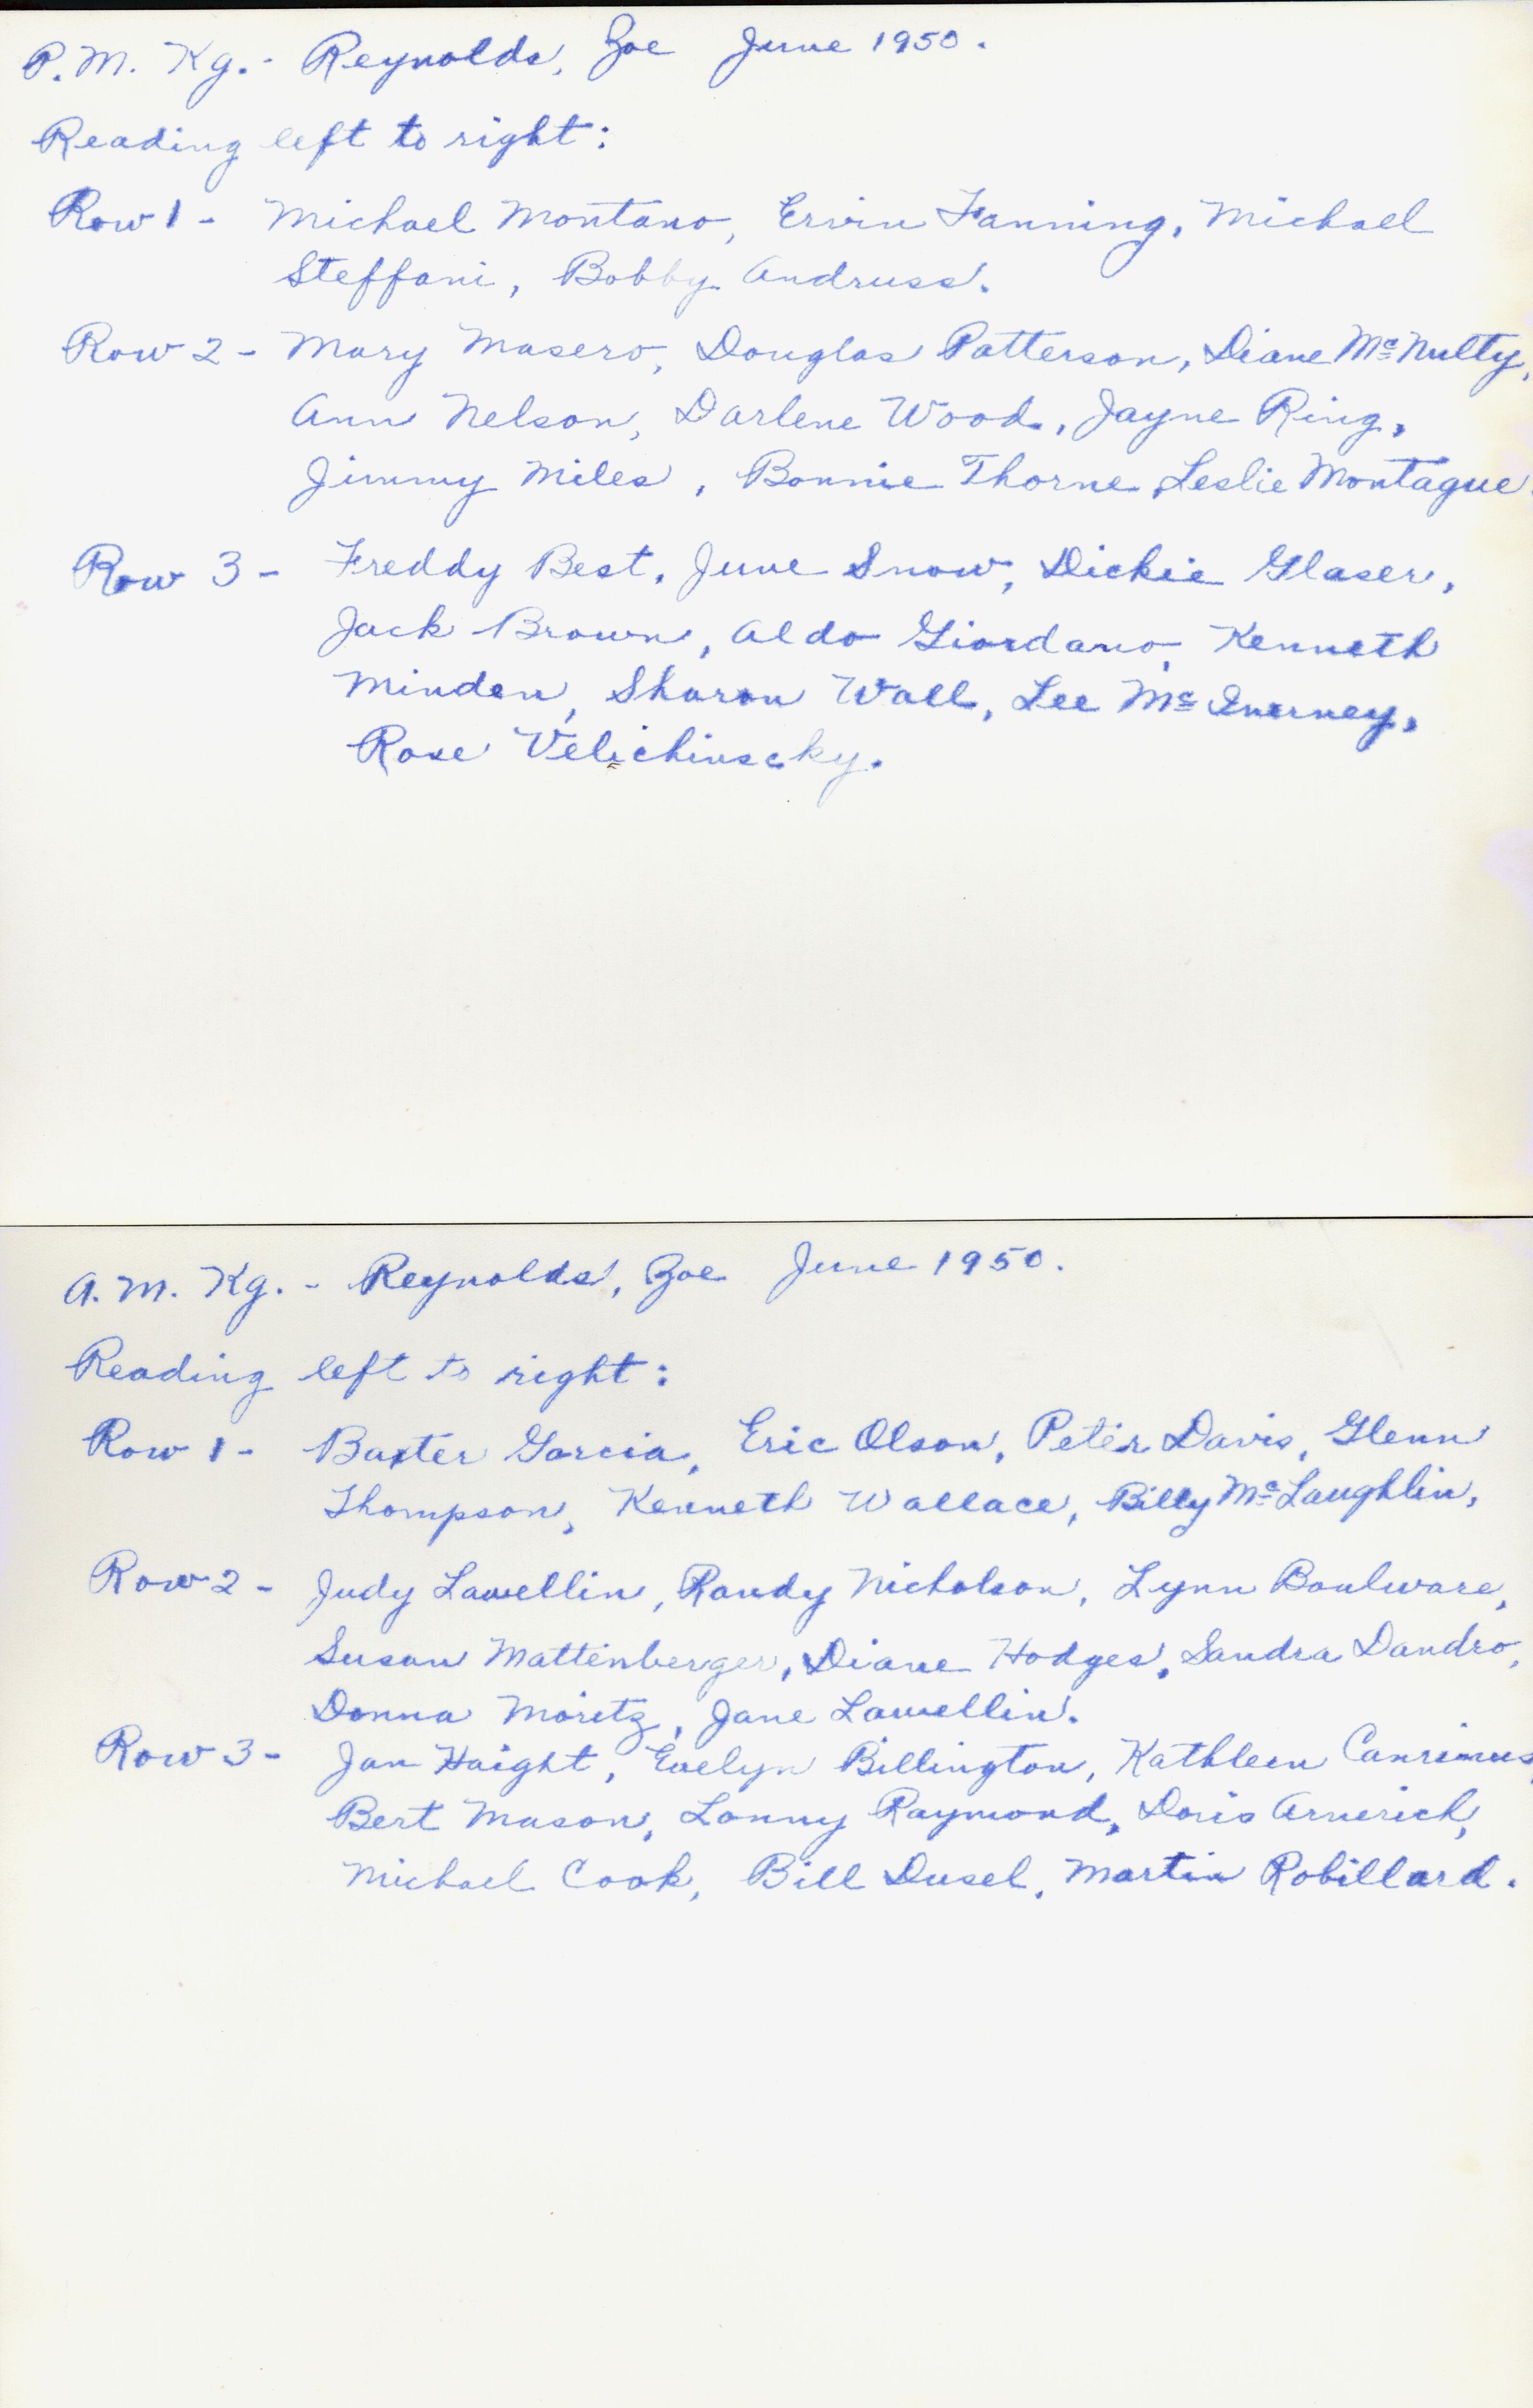 P.M. Kg. - Reynolds, Zoe June 1950.
Reading left to right:
Row 1 - Michael Montano, Ervin Fanning, Michael
Steffani, Bobby Andruss.
Row 2 - Mary Masero, Douglas Patterson, Diane McNulty,
Ann Nelson, Darlene Wood, Jayne Ring,
Jimmy Miles, Bonnie Thorne, Leslie Montague.
Row 3 - Freddy Best, June Snow, Dickie Glaser,
Jack Brown, Aldo Giordano, Kenneth
Minden, Sharon Wall, Lee McInerney,
Rose Velichinscky.
A.M. Kg. - Reynolds, Zoe June 1950.
Reading left to right:
Row 1 - Baxter Garcia, Eric Olson, Peter Davis, Glenn
Thompson, Kenneth Wallace, Billy McLaughlin,
Row 2 - Judy Lawellin, Randy Nicholson, Lynn Boulware,
Susan Mattenberger, Diane Hodges, Sandra Dandro,
Donna Moritz, Jane Lawellin.
Row 3 - Jan Haight, Evelyn Billington, Kathleen
Bert Mason, Lonny Raymond, Doris Arnerich,
Michael Cook, Bill Dusel, Martin Robillard.